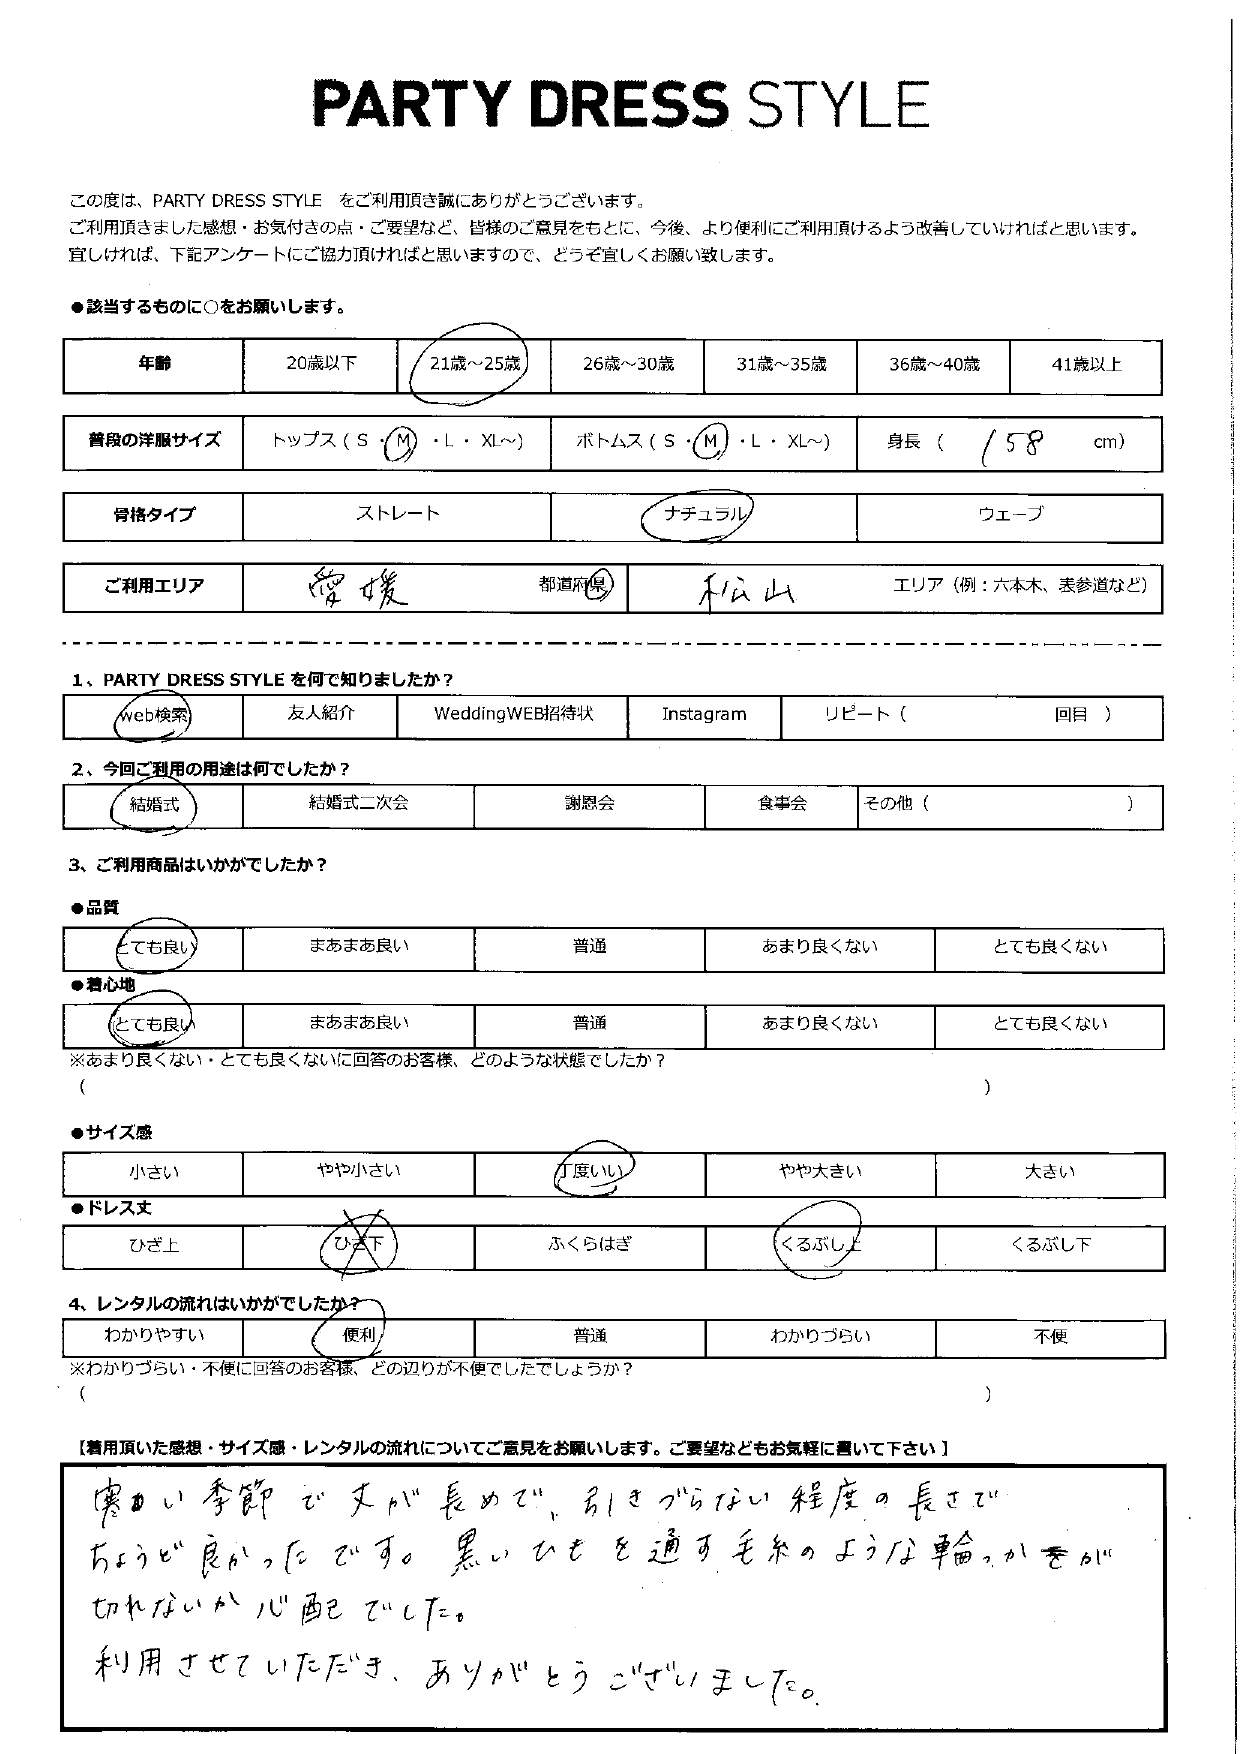 PARTY DRESS STYLE
この度は、PARTY DRESS STYLE をご利用頂き誠にありがとうございます。
ご利用頂きました感想・お気付きの点・ご要望など、皆様のご意見をもとに、今後、より便利にご利用頂けるよう改善していければと思います。
宜しければ、下記アンケートにご協力頂ければと思いますので、どうぞ宜しくお願い致します。
●該当するものに○をお願いします。
年齢 20歳以下 21歳～25歳 26歳～30歳 31歳～35歳 36歳～40歳 41歳以上
普段の洋服サイズ トップス ( S ・ M ・ L ・ XL～) ボトムス ( S ・ M ・ L ・ XL～) 身長 ( 158 cm)
骨格タイプ ストレート ナチュラル ウェーブ
ご利用エリア 愛媛 都道府県 松山 エリア（例：六本木、表参道など）
1、PARTY DRESS STYLE を何で知りましたか？
web検索 友人紹介 WeddingWEB招待状 Instagram リピート（ 回目 ）
2、今回ご利用の用途は何でしたか？
結婚式 結婚式二次会 謝恩会 食事会 その他（ ）
3、ご利用商品はいかがでしたか？
●品質
とても良い まあまあ良い 普通 あまり良くない とても良くない
●着心地
とても良い まあまあ良い 普通 あまり良くない とても良くない
※あまり良くない・とても良くないに回答のお客様、どのような状態でしたか？
（ ）
●サイズ感
小さい やや小さい 丁度いい やや大きい 大きい
●ドレス丈
ひざ上 ひざ下 ふくらはぎ くるぶし上 くるぶし下
4、レンタルの流れはいかがでしたか？
わかりやすい 便利 普通 わかりづらい 不便
※わかりづらい・不便に回答のお客様、どの辺りが不便でしたでしょうか？
（ ）
【着用頂いた感想・サイズ感・レンタルの流れについてご意見をお願いします。ご要望などもお気軽に書いて下さい】
寒い季節で丈が長めで、引きづらない程度の長さで
ちょうど良かったです。黒いひもを通す毛糸のような輪っかが
切れないか心配でした。
利用させていただき、ありがとうございました。